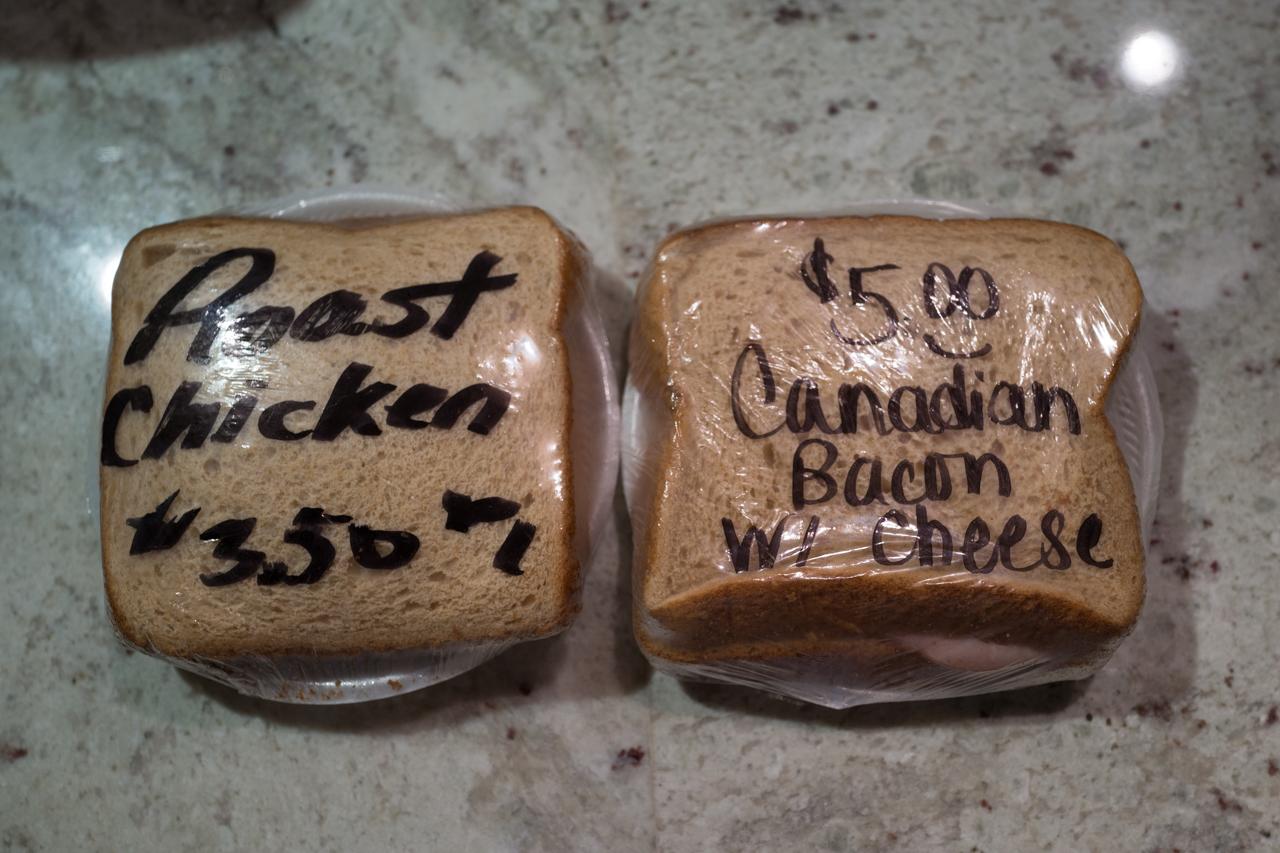 Roast
Chicken
$3.50
$5.00
Canadian
Bacon
w/ cheese